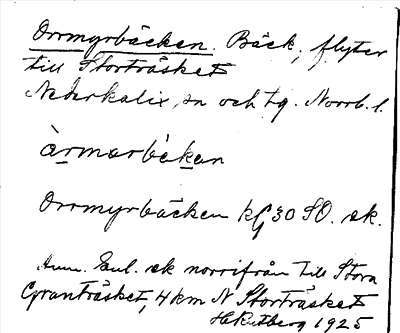 Orrmyrbäcken. Bäck, flyter
till Storträsket
Nederkalix sn och tg. Norrb. l.
àrmarbèkan
Orrmyrbäcken kG 30 SO. ek.
Anm. Enl. ek norrifrån till Stora
Granträsket, 4 km N Storträsket
H Rutberg 1925